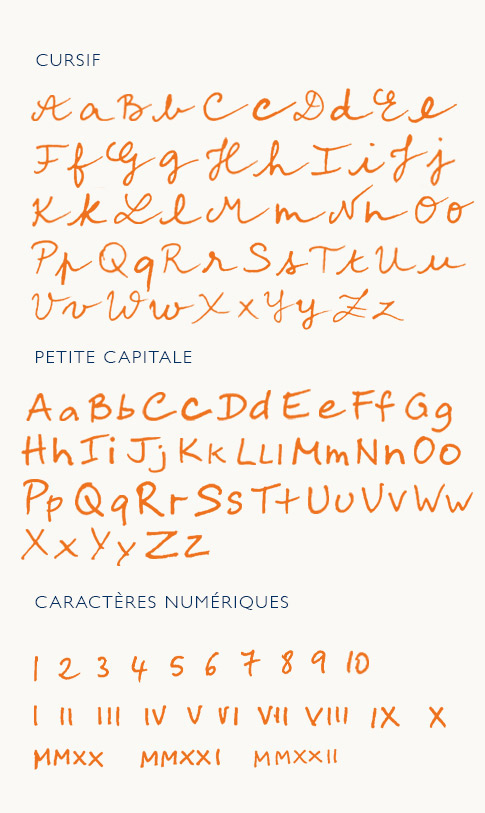 CURSIF
A a B b C c D d E e
F f G g H h I i J j
K k L l M m N n O o
P p Q q R r S s T t U u
V v W w X x Y y Z z
PETITE CAPITALE
A a B b C c D d E e F f G g
H h I i J j K k L L l M m N n O o
P p Q q R r S s T t U u V v W w
X x Y y Z z
CARACTÈRES NUMÉRIQUES
1 2 3 4 5 6 7 8 9 10
I II III IV V VI VII VIII IX X
MMXX MMXXI MMXXII